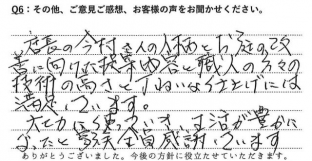 Q6：その他、ご意見ご感想、お客様の声をお聞かせください。
店長の今村さんの人柄とお庭の改
善に向けた提案内容と職人の方々の
技術の高さとていねいな仕上げには
満足しています。
大切に使っていき、生活が豊かに
なったと家族全員感謝しています
ありがとうございました。今後の方針に役立たせていただきます。